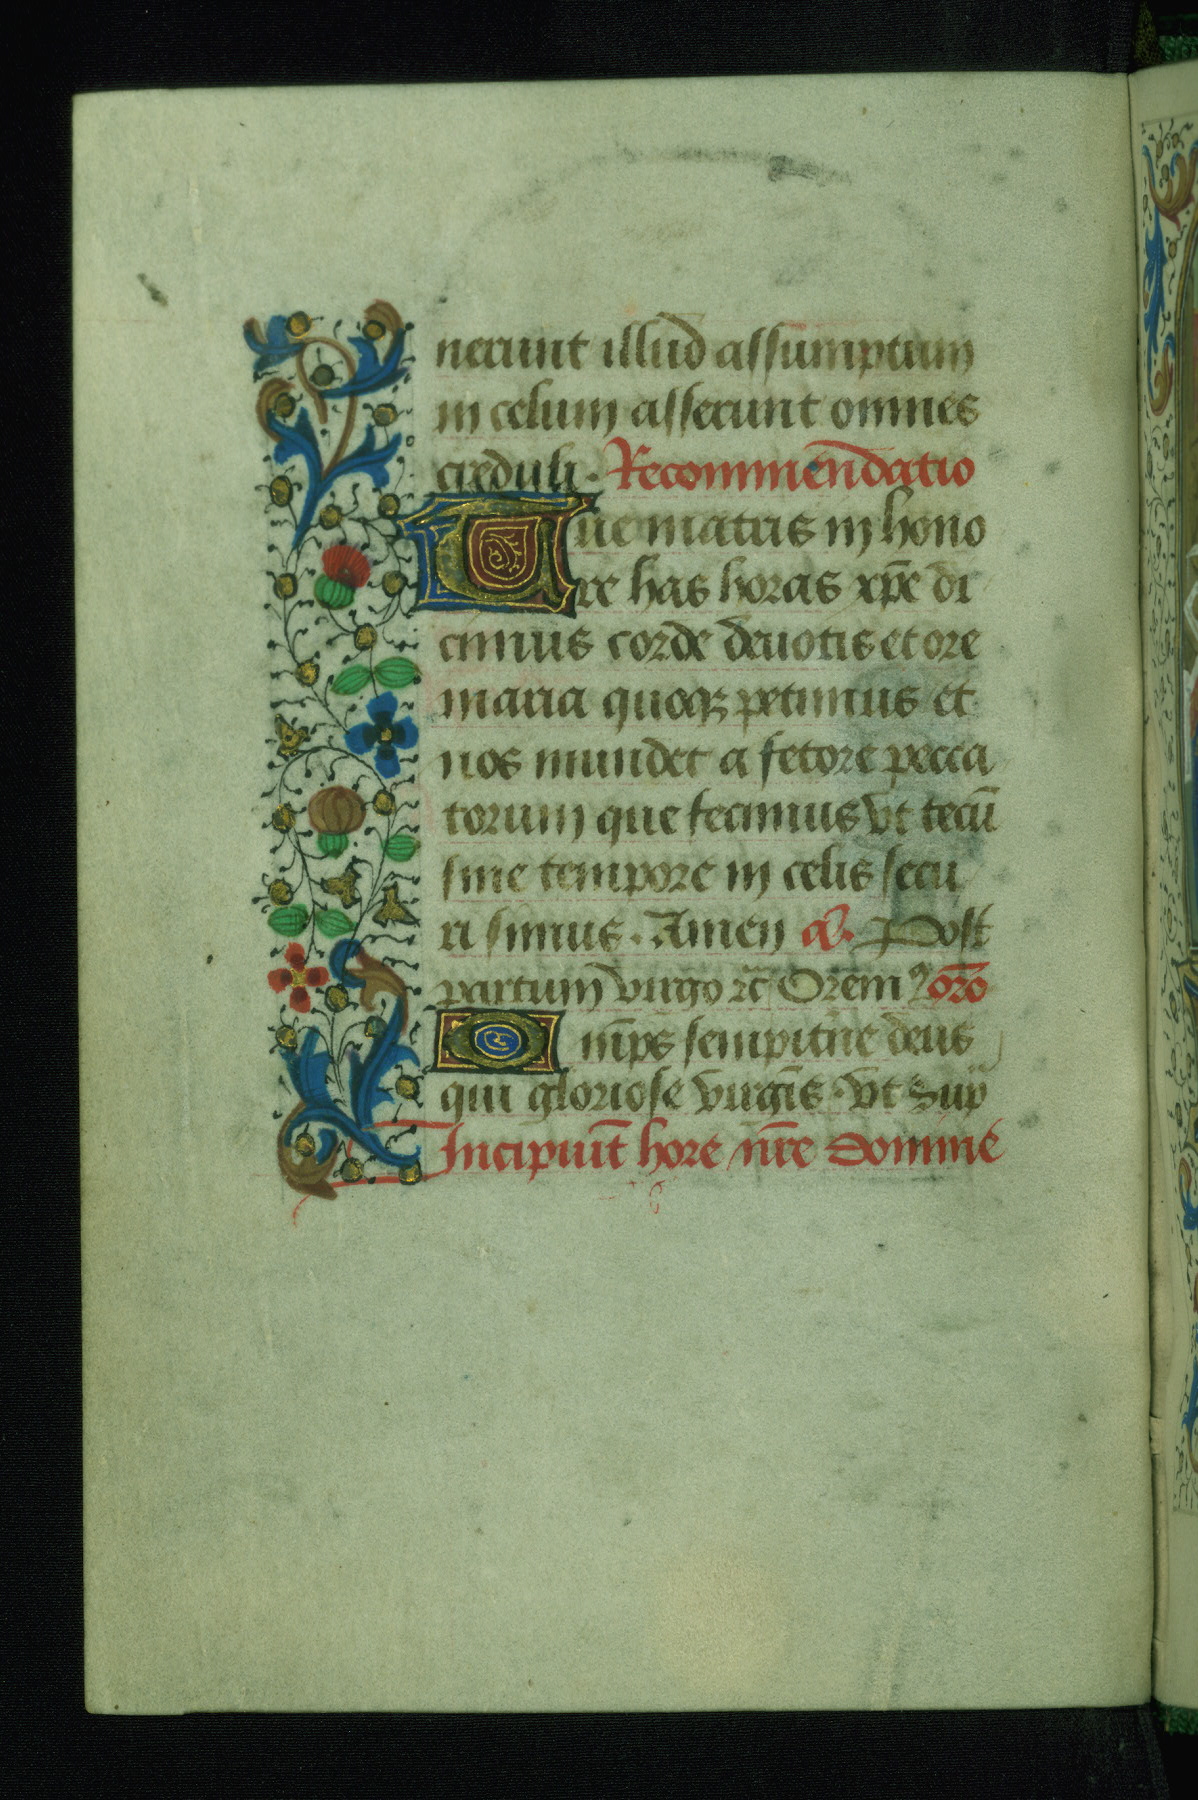 nerunt illud assumptum
in celum asserunt omnes
creduli. Recommendatio
Tue matris in hono
re has horas xp̄e di
cimus corde deuotis et ore
maria quoqꝫ petimus et
nos mundet a fetore pecca
torum que fecimus vt tecū
sine tempore in celis secu
ri simus. Amen Post
partum virgo ꝛc̄ Orem⁹ oro
Om̄ps sempit̄ne deus
qui gloriose virgīs. vt sup̄
Incipiūt hore nr̄e domine